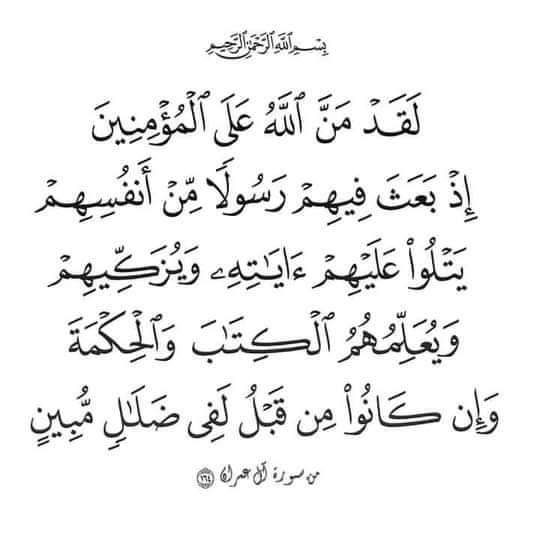 بِسْمِ اللَّهِ الرَّحْمَٰنِ الرَّحِيمِ
لَقَدْ مَنَّ ٱللَّهُ عَلَى ٱلْمُؤْمِنِينَ
إِذْ بَعَثَ فِيهِمْ رَسُولًا مِّنْ أَنفُسِهِمْ
يَتْلُوا۟ عَلَيْهِمْ ءَايَٰتِهِۦ وَيُزَكِّيهِمْ
وَيُعَلِّمُهُمُ ٱلْكِتَٰبَ وَٱلْحِكْمَةَ
وَإِن كَانُوا۟ مِن قَبْلُ لَفِى ضَلَٰلٍ مُّبِينٍ
من سورة آل عمران ١٦٤